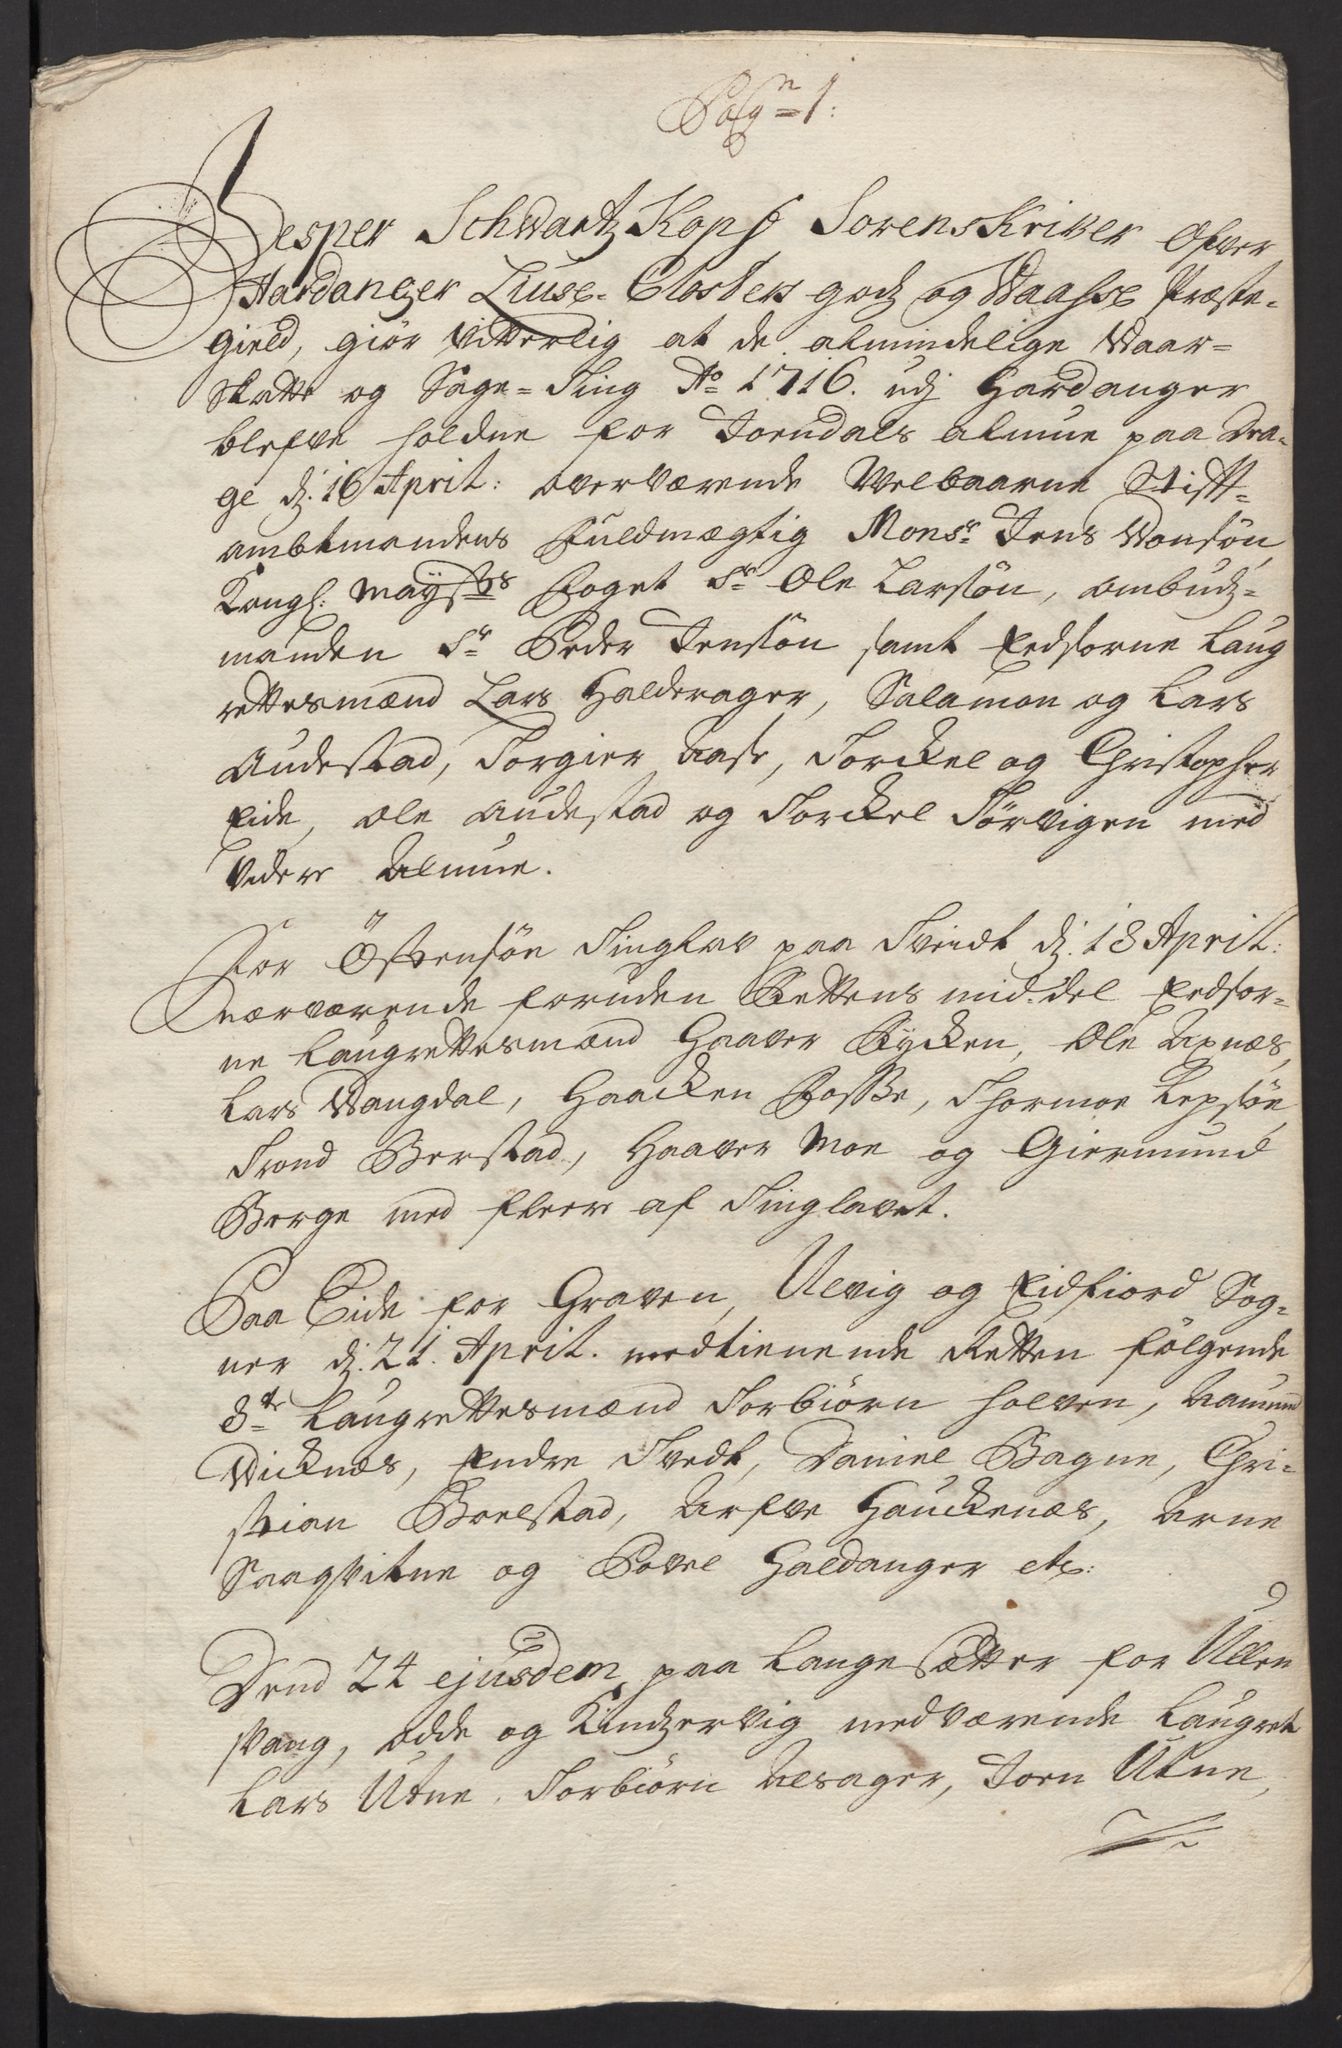 Pagn 1:
Jesper Schwartz Kopf Sorenskriver ofver
Hardanger Lüse-Closters godz og Waasse Præste-
gield, giør vitterlig at de almindelige Vaar-
skatte og Sage-Ting Ao 1716. udj Hardanger
blefve holdne for Joendals almue paa Dra-
ge d. 16 April: overværende Welbaarne Stift-
ambtmandens Füldmægtig Monsr. Jens Vonsøn
Kongl: Mayts Foget Sr Ole Larsøn, ombudz-
manden Sr Peder Jensøn samt Eedsorne Laug
rettesmænd Lars Halderager, Salamon og Lars
Audestad, Torgier Aase, Torckel og Christopher
Eide, Ole Audestad og Torckel Tørvigen med
videre Almue.
For Østensøe Tinglav paa Tveidt d. 18 April:
nærværende foruden Rettens middel Eedsor-
ne Laugrettesmænd Haaver Rycken, Ole Axnæs,
Lars Vangdal, Haacken Fosse, Thormoe Lepsøe
Trond Berstad, Haaver Moe og Giermund
Berge med fleere af Tinglavet.
Paa Eide for Graven, Ulvig og Eidfiord Sog-
ner d. 21. April. medtienende Retten følgende
8te Laugrettesmænd Torbiørn Holven, Aamund
Wicknæs, Endre Tvedt, Daniel Bagne, Chri-
stian Boelstad, Arfve Hauckenæs, Arne
Saaqvitne og Povel Haldanger etc:
Dend 24 ejusdem paa Langesætter for Ullen
svang, Odde og Kindzervig medværende Laugret
Lars Utne, Torbiørn Alsager, Joen Utne,